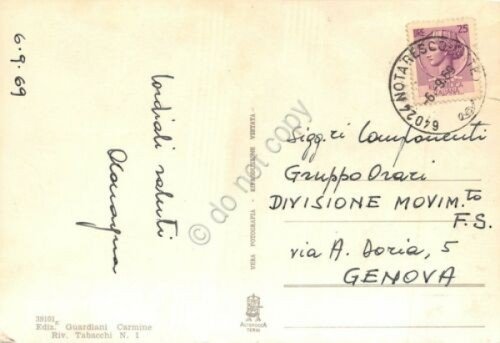 6.9.69
Cordiali saluti
VERA FOTOGRAFIA - RIPRODUZIONE VIETATA
39101
Ediz. Guardiani Carmine
Riv. Tabacchi N. 1
ALTEROCCA
TERNI
LIRE 25
64024 NOTARESCO
6.9.69
Sigg.ri Componenti
Gruppo Orari
DIVISIONE MOVIM.to
F.S.
via A. Doria, 5
GENOVA
© do not copy